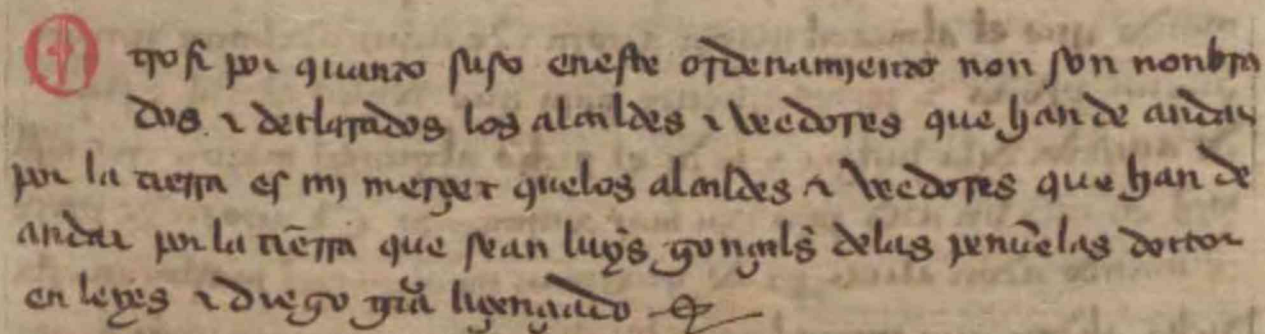 Otrosi por quanto suso eneste ordenamiento non son nonbra
dos. ⁊ declarados los alcaldes ⁊ veedores que han de andar
por la tierra es mj merçet quelos alcaldes ⁊ veedores que han de
andar por la tierra que sean luys gonçals delas penuelas dottor
en leyes ⁊ diego gra liçençiado